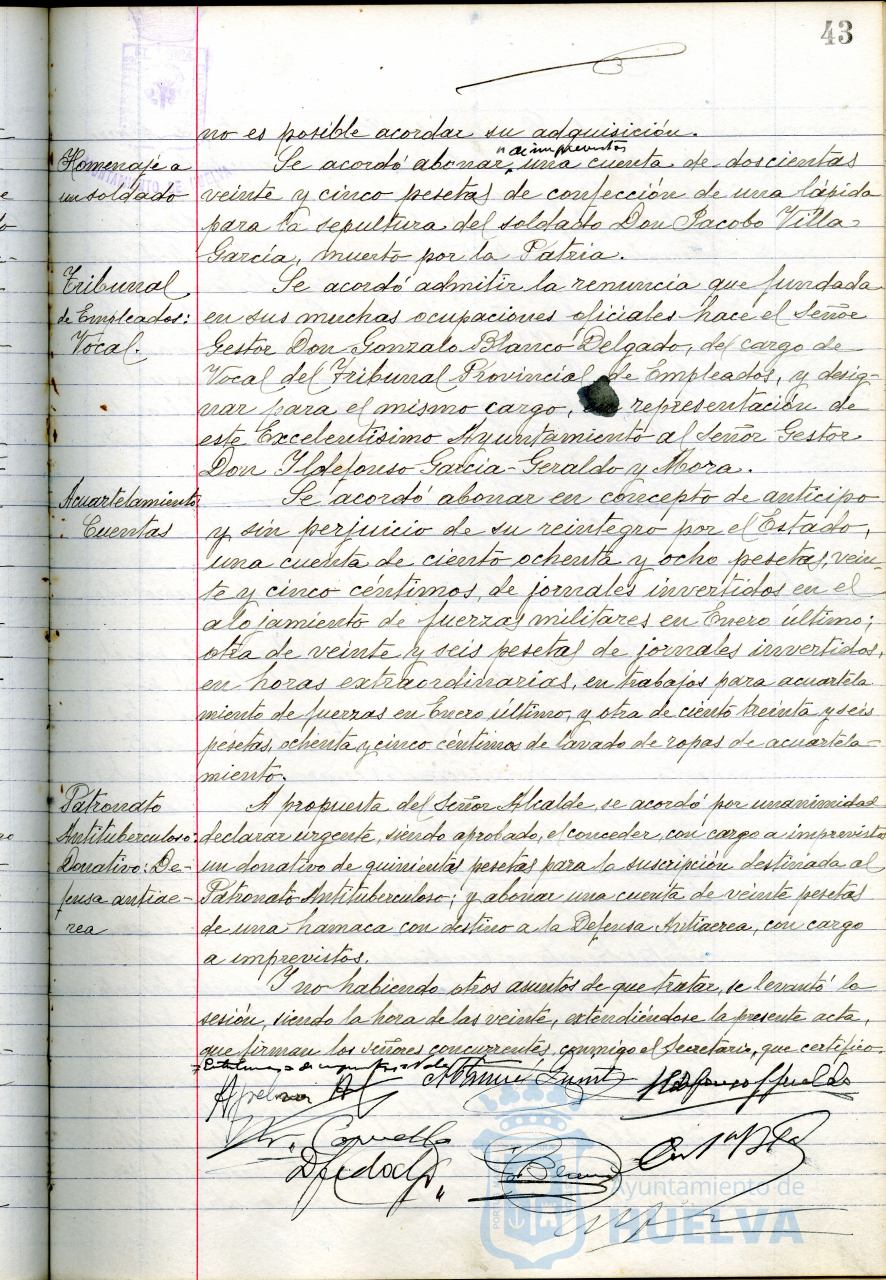 43
no es posible acordar su adquisición.
Homenaje a
un soldado
"de imprevistos
Se acordó abonar, una cuenta de doscientas
veinte y cinco pesetas de confección de una lápida
para la sepultura del soldado Don Jacobo Villa
García, muerto por la Patria.
Tribunal
de Empleados:
Vocal.
Se acordó admitir la renuncia que fundada
en sus muchas ocupaciones oficiales hace el Señor
Gestor Don Gonzalo Blanco Delgado, del cargo de
Vocal del Tribunal Provincial de Empleados, y desig-
nar para el mismo cargo, en representación de
este Excelentísimo Ayuntamiento al Señor Gestor
Don Ildefonso García-Geraldo y Mora.
Acuartelamiento
Cuentas
Se acordó abonar en concepto de anticipo
y sin perjuicio de su reintegro por el Estado,
una cuenta de ciento ochenta y ocho pesetas, vein-
te y cinco céntimos, de jornales invertidos en el
alojamiento de fuerzas militares en Enero último;
otra de veinte y seis pesetas de jornales invertidos,
en horas extraordinarias, en trabajos para acuartela
miento de fuerzas en Enero último, y otra de ciento treinta y seis
pesetas, ochenta y cinco céntimos de lavado de ropas de acuartela-
miento.
Patronato
Antituberculoso:
Donativo: De-
fensa antiae-
rea
A propuesta del Señor Alcalde, se acordó por unanimidad
declarar urgente, siendo aprobado, el conceder, con cargo a imprevistos
un donativo de quinientas pesetas para la suscripción destinada al
Patronato Antituberculoso; y abonar una cuenta de veinte pesetas
de una hamaca con destino a la Defensa Antiaerea, con cargo
a imprevistos.
Y no habiendo otros asuntos de que tratar, se levantó la
sesión, siendo la hora de las veinte, extendiéndose la presente acta,
que firman los señores concurrentes, conmigo el Secretario, que certifico.
Ayuntamiento de
HUELVA